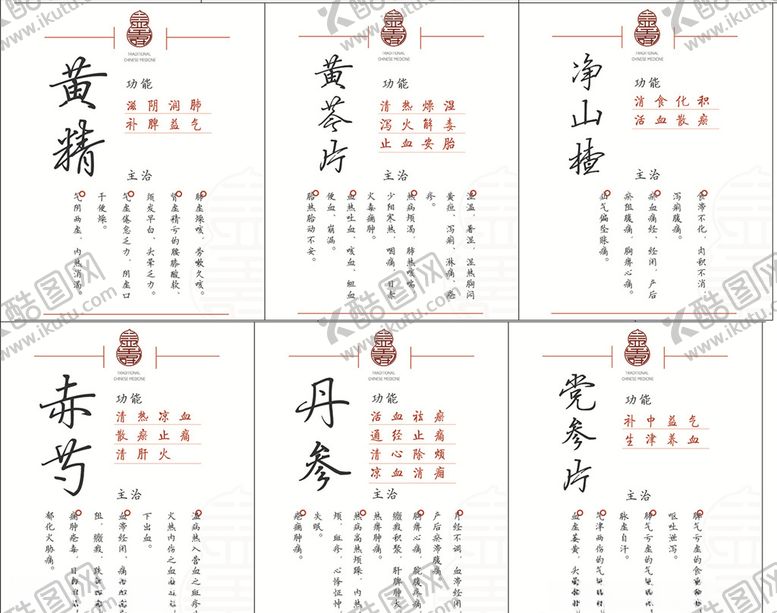 TRADITIONAL
CHINESE MEDICINE
黄精
功能
滋阴润肺
补脾益气
主治
肺虚燥咳、劳嗽久咳。
肾虚精亏的腰膝酸软、
须发早白、头晕乏力。
气虚倦怠乏力、阴虚口
干便燥。
气阴两虚、内热消渴。
TRADITIONAL
CHINESE MEDICINE
黄芩片
功能
清热燥湿
泻火解毒
止血安胎
主治
湿温、暑湿、湿热胸闷
黄疸、泻痢、淋痛、疮
疹。
热病烦渴、肺热咳喘
少阳寒热、咽痛、目赤
火毒痈肿。
血热吐血、咳血、衄血
便血、崩漏。
胎热胎动不安。
净山楂
功能
消食化积
活血散瘀
主治
食滞不化、肉积不消
泻痢腹痛。
瘀血痛经、经闭、产后
瘀阻腹痛、胸痹心痛。
疝气偏坠胀痛。
TRADITIONAL
CHINESE MEDICINE
赤芍
功能
清热凉血
散瘀止痛
清肝火
主治
温病热入营血之斑疹
火热内伤之血
下出血。
血滞经闭、痛
阻、癥瘕、跌
痈肿疮毒、目
郁化火胁痛。
TRADITIONAL
CHINESE MEDICINE
丹参
功能
活血祛瘀
通经止痛
清心除烦
凉血消痈
主治
月经不调、血滞经闭
产后瘀滞腹痛
胸痹心痛、脘腹疼
癥瘕积聚、肝脾肿大
热痹肿痛。
热病高热烦躁、内热
烦、斑疹、心悸怔忡
失眠。
疮痈肿痛。
TRADITIONAL
CHINESE MEDICINE
党参片
功能
补中益气
生津养血
主治
脾气亏虚的食
呕吐泄泻。
肺气亏虚的气
脉虚自汗。
气津两伤的气
血虚萎黄、头
酷图网
www.ikutu.com